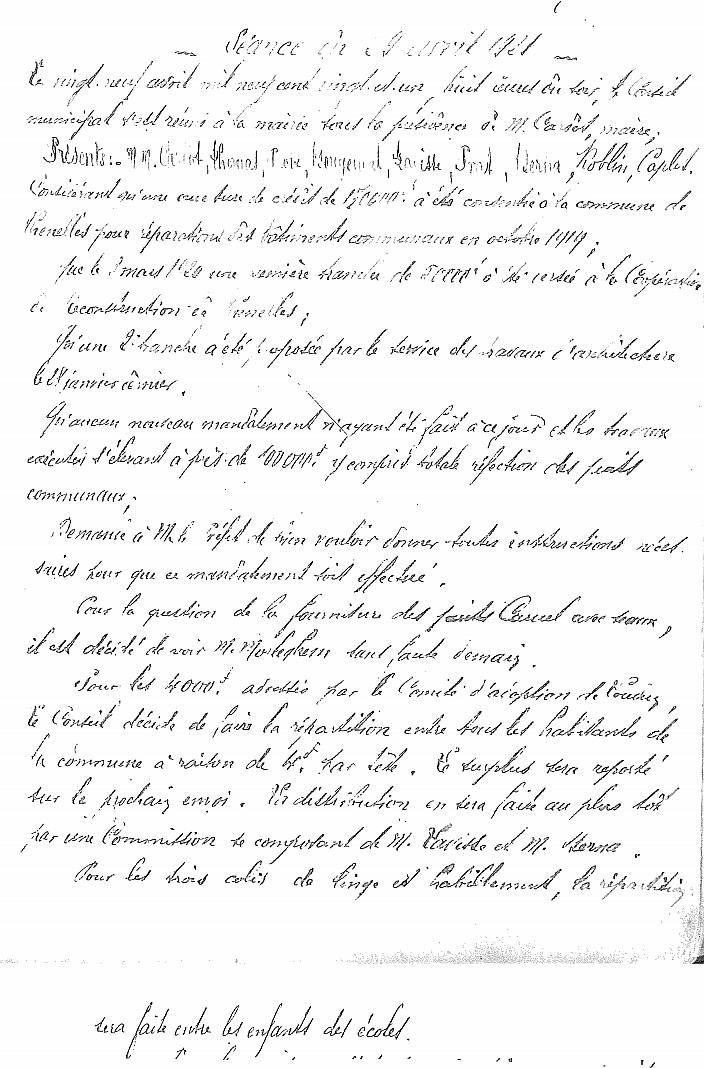 Séance du 29 avril 1921
Le vingt-neuf avril mil neuf cent vingt-et-un, huit heures du soir, le Conseil
municipal s'est réuni à la mairie sous la présidence de M. Carsot, maire;
Présents: MM. Thomas, Lavisse, Berna, Roblin, Caplet.
Considérant qu'une ouverture de crédit de a été consentie à la commune de
pour réparations des bâtiments communaux en octobre 1919;
que le 3 mars 1920 une première tranche de a été versée à la Coopérative
de Reconstruction de
Qu'une 2e tranche a été proposée par le service des travaux d'architecture
le janvier dernier.
Qu'aucun nouveau mandatement n'ayant été fait à ce jour et les travaux
exécutés s'élevant à près de 100000f y compris totale réfection des puits
communaux;
Demande à M. le Préfet de bien vouloir donner toutes instructions néces-
saires pour que ce mandatement soit effectué.
Pour la question de la fourniture des puits Caruel avec seaux,
il est décidé de voir M. sans faute demain.
Pour les 4000f adressés par le Comité d'adoption de
le Conseil décide de faire la répartition entre tous les habitants de
la commune à raison de par tête. Le surplus sera reporté
sur le prochain envoi. La distribution en sera faite au plus tôt
par une Commission se composant de M. Lavisse et M. Berna.
Pour les trois colis de linge et habillement, la répartition
sera faite entre les enfants des écoles.